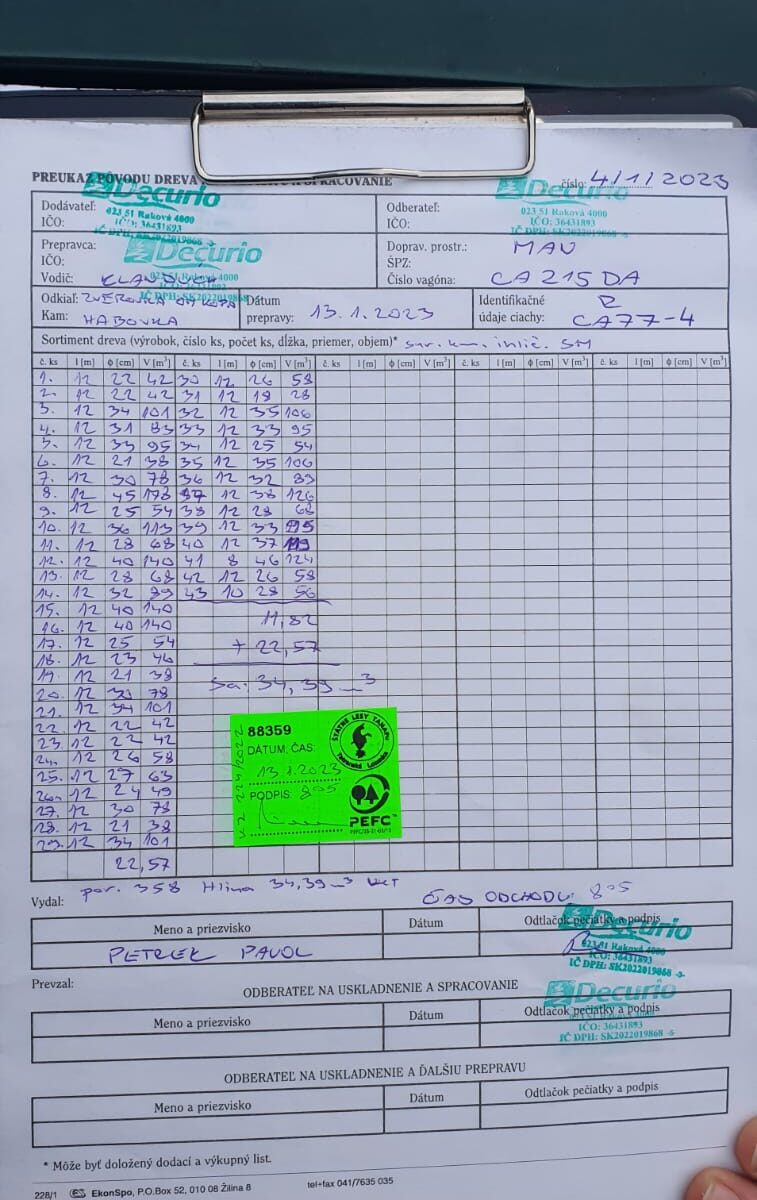 PREUKAZ PÔVODU DREVA SPRACOVANIE
číslo: 4/1/2023
Decurio
023 51 Raková 4000
IČO: 36431893
IČ DPH: SK2022019868 -3-
Decurio
023 51 Raková 4000
IČO: 36431893
IČ DPH: SK2022019868 -3-
Dodávateľ:
IČO:
Odberateľ:
IČO:
Prepravca:
IČO:
Vodič:
Decurio
023 51 Raková 4000
IČ DPH: SK2022019868
Doprav. prostr.: MAN
ŠPZ:
Číslo vagóna: CA 215 DA
Odkiaľ: ZVEROVKA
Kam: HABOVKA
Dátum prepravy: 13.1.2023
Identifikačné údaje ciachy: CA77-4
Sortiment dreva (výrobok, číslo ks, počet ks, dĺžka, priemer, objem)* sur. km. ihlič. SM
č. ks l [m] ϕ [cm] V [m³] č. ks l [m] ϕ [cm] V [m³] č. ks l [m] ϕ [cm] V [m³] č. ks l [m] ϕ [cm] V [m³] č. ks l [m] ϕ [cm] V [m³]
1. 12 22 42 30 12 26 58
2. 12 22 42 31 12 18 28
3. 12 34 101 32 12 35 106
4. 12 31 83 33 12 33 95
5. 12 33 95 34 12 25 54
6. 12 21 38 35 12 35 106
7. 12 30 78 36 12 32 89
8. 12 45 178 37 12 38 126
9. 12 25 54 38 12 28 68
10. 12 36 113 39 12 33 95
11. 12 28 68 40 12 37 119
12. 12 40 140 41 8 46 124
13. 12 28 68 42 12 26 58
14. 12 32 89 43 10 28 56
15. 12 40 140
16. 12 40 140 11,82
17. 12 25 54 + 22,57
18. 12 23 46
19. 12 21 38 Sa: 34,39 m³
20. 12 30 78
21. 12 34 101
22. 12 22 42
23. 12 22 42
24. 12 26 58
25. 12 27 63
26. 12 24 49
27. 12 30 78
28. 12 21 38
29. 12 34 101
22,57
88359
DÁTUM, ČAS:
13.1.2023
PODPIS: 805
ŠTÁTNE LESY TANAPU
Tatranská Lomnica
PEFC™
por. 358 Hlina 34,39 m³
ČAS ODCHODU: 805
Vydal:
Meno a priezvisko Dátum Odtlačok pečiatky a podpis
PETREK PAVOL
Decurio
023 51 Raková 4000
IČO: 36431893
IČ DPH: SK2022019868 -3-
Prevzal:
ODBERATEĽ NA USKLADNENIE A SPRACOVANIE
Meno a priezvisko Dátum Odtlačok pečiatky a podpis
Decurio
023 51 Raková 4000
IČO: 36431893
IČ DPH: SK2022019868 -3-
ODBERATEĽ NA USKLADNENIE A ĎALŠIU PREPRAVU
Meno a priezvisko Dátum Odtlačok pečiatky a podpis
* Môže byť doložený dodací a výkupný list.
228/1 EkonSpo, P.O.Box 52, 010 08 Žilina 8 tel+fax 041/7635 035